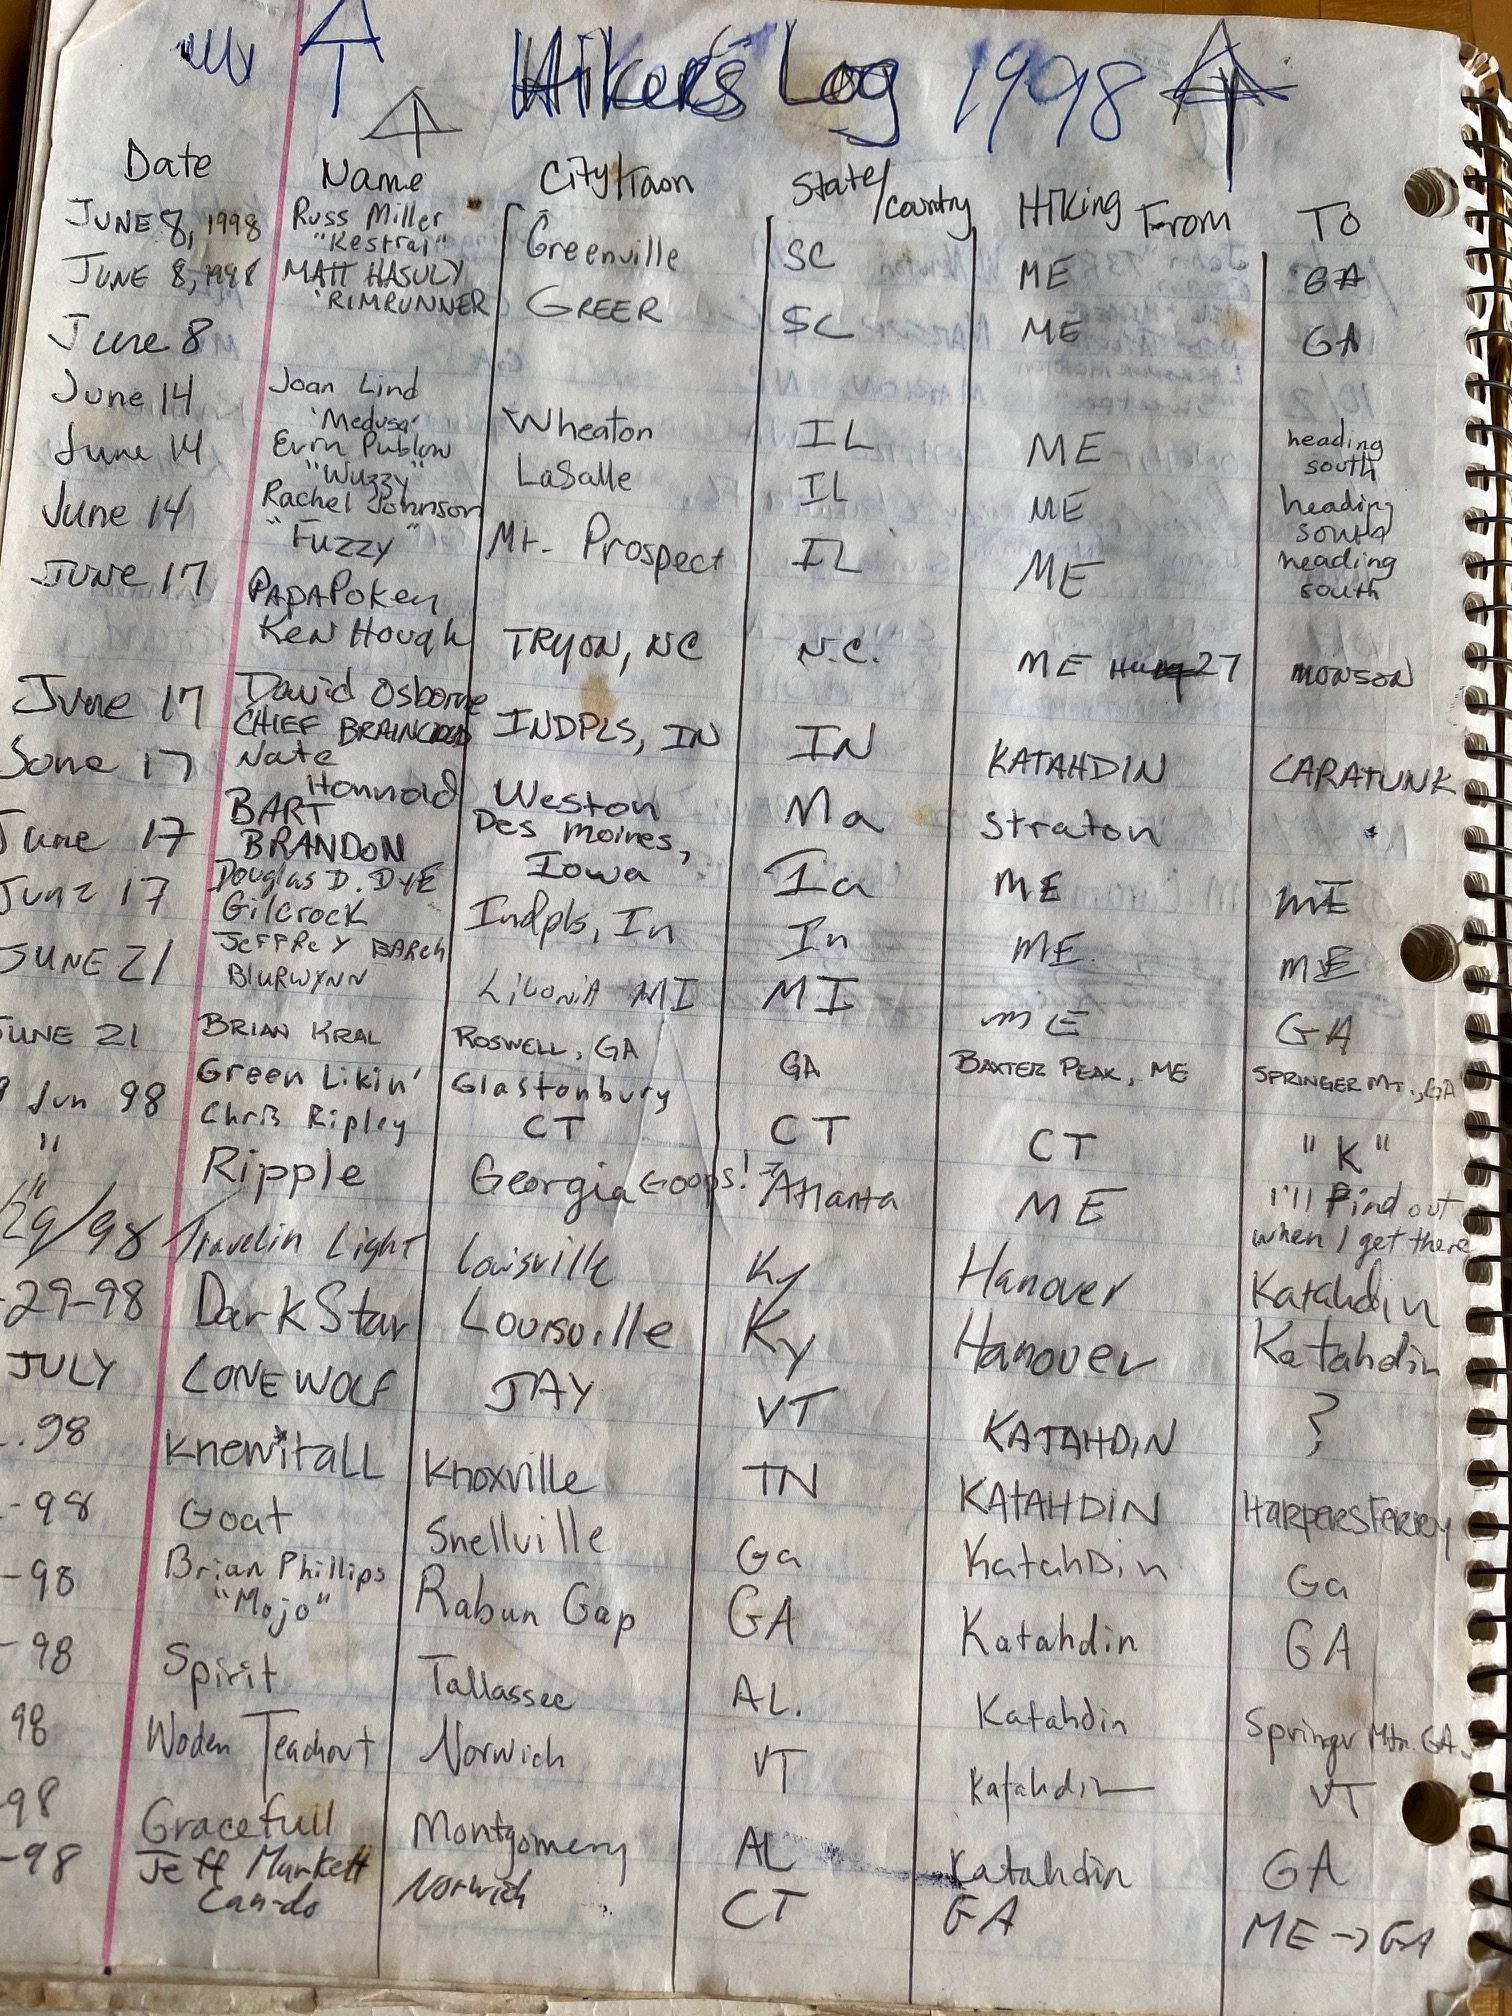 Hiker's Log 1998
Date Name City/Town State/Country Hiking From To
JUNE 8, 1998 Russ Miller "Kestral" Greenville SC ME GA
JUNE 8, 1998 MATT HASULY 'RIMRUNNER GREER SC ME GA
June 8
June 14 Joan Lind 'Medusa' Wheaton IL ME heading south
June 14 Publow "Wuzzy" LaSalle IL ME heading south
June 14 Rachel Johnson "Fuzzy" Mt. Prospect IL ME heading south
JUNE 17 PAPAPOKEY Ken Hough TRYON, NC N.C. ME 27 MONSON
June 17 David Osborne CHIEF INDPLS, IN IN KATAHDIN CARATUNK
June 17 Nate Honnold Weston Ma Straton
June 17 BART BRANDON Des Moines, Iowa Ia ME ME
June 17 Douglas D. DYE Gilcrock Indpls, In In ME. ME
JUNE 21 JeFFReY BARCh BlURWYNN LiVoniA MI MI ME GA
JUNE 21 BRIAN KRAL ROSWELL, GA GA BAXTER PEAK, ME SPRINGER MT., GA
9 Jun 98 Green Likin' Chris Ripley Glastonbury CT CT CT "K"
" Ripple Georgia Goops! → Atlanta ME I'll Find out when I get there
" /29/98 Travelin Light Louisville Ky Hanover Katahdin
-29-98 DarkStar Louisville Ky Hanover Katahdin
JULY LONE WOLF JAY VT KATAHDIN ?
.98 Knewitall Knoxville TN KATAHDIN HARPERS FERRY
-98 Goat Snellville Ga KatahDin Ga
-98 Brian Phillips "Mojo" Rabun Gap GA Katahdin GA
-98 Spirit Tallassee AL. Katahdin Springer Mtn. GA.
98 Woden Teachout Norwich VT Katahdin VT
-98 Gracefull Montgomery AL Katahdin GA
-98 Jeff Markett Can-do Norwich CT GA ME → GA